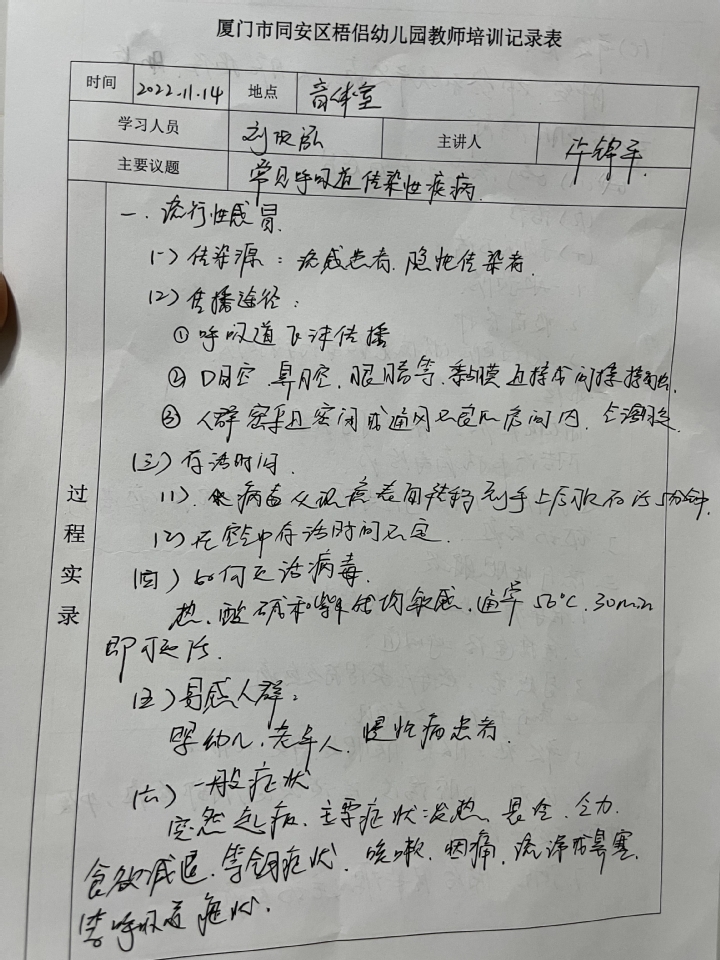 厦门市同安区梧侣幼儿园教师培训记录表
时间 2022.11.14 地点 音体室
学习人员 刘 主讲人 许锦
主要议题 常见呼吸道传染性疾病.
过程实录
一. 流行性感冒.
(一) 传染源: 流感患者. 隐性传染者.
(二) 传播途径:
① 呼吸道飞沫传播
② 口腔. 鼻腔. 眼睛等. 黏膜直接或间接接触.
③ 人群密集且密闭或通风不良的房间内.
(三) 存活时间.
(1). 病毒从 表面转移到手上后 存活5分钟.
(2) 在空气中存活时间不定.
(四) 如何灭活病毒.
热. 酸碱和紫外线均敏感. 通常 56°C. 30min
即可灭活.
(五) 易感人群:
婴幼儿. 老年人. 慢性病患者.
(六) 一般症状
突然起病. 主要症状: 发热. 畏寒. 乏力.
食欲减退. 等全身症状. 咳嗽. 咽痛. 流涕或鼻塞.
等呼吸道症状.